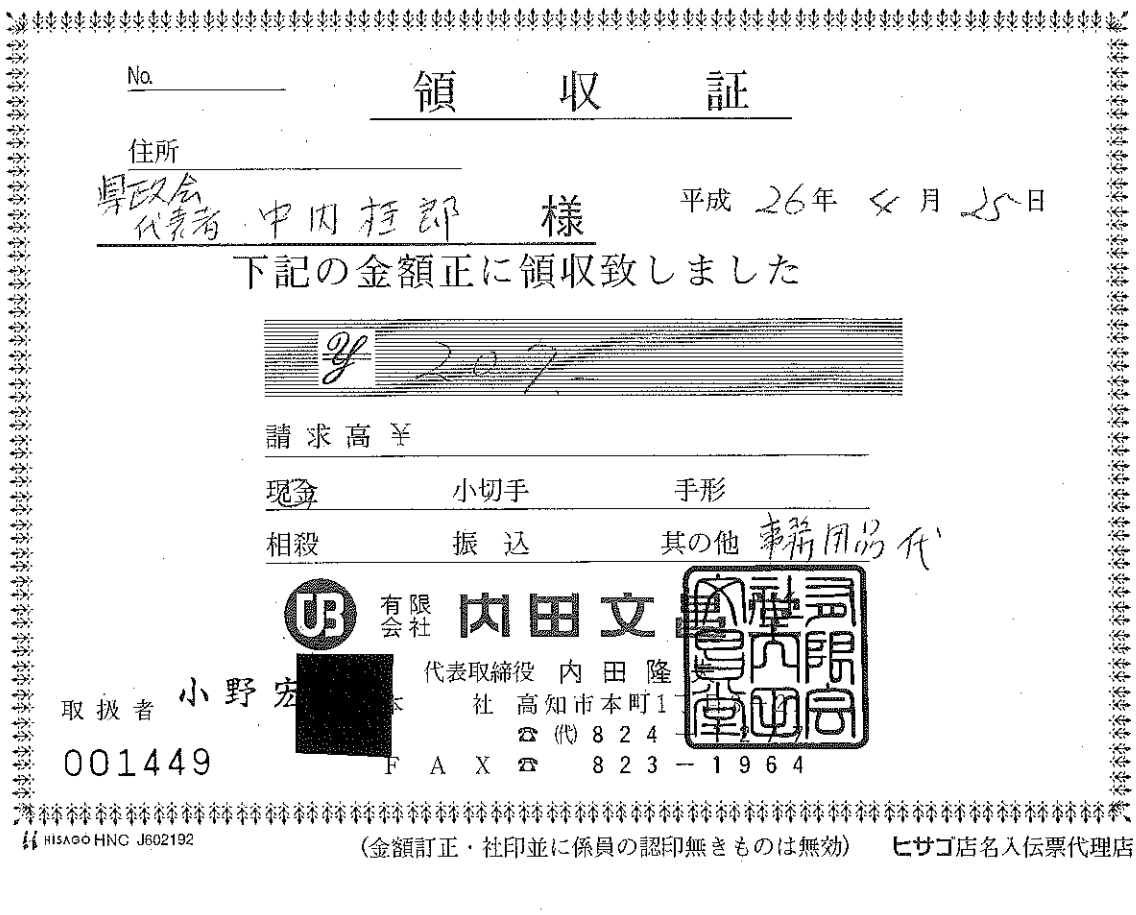 No.
領収証
住所
県政会
代表者 中内桂郎 様
平成 26年 4月 25日
下記の金額正に領収致しました
¥ 207
請求高 ¥
現金 小切手 手形
相殺 振込 其の他 事務用品代
UB 有限会社 内田文昌
代表取締役 内田隆
取扱者 小野宏
本社 高知市本町1丁
☎ (代) 824-
001449
FAX ☎ 823-1964
HISAGO HNC J602192
(金額訂正・社印並に係員の認印無きものは無効)
ヒサゴ店名入伝票代理店